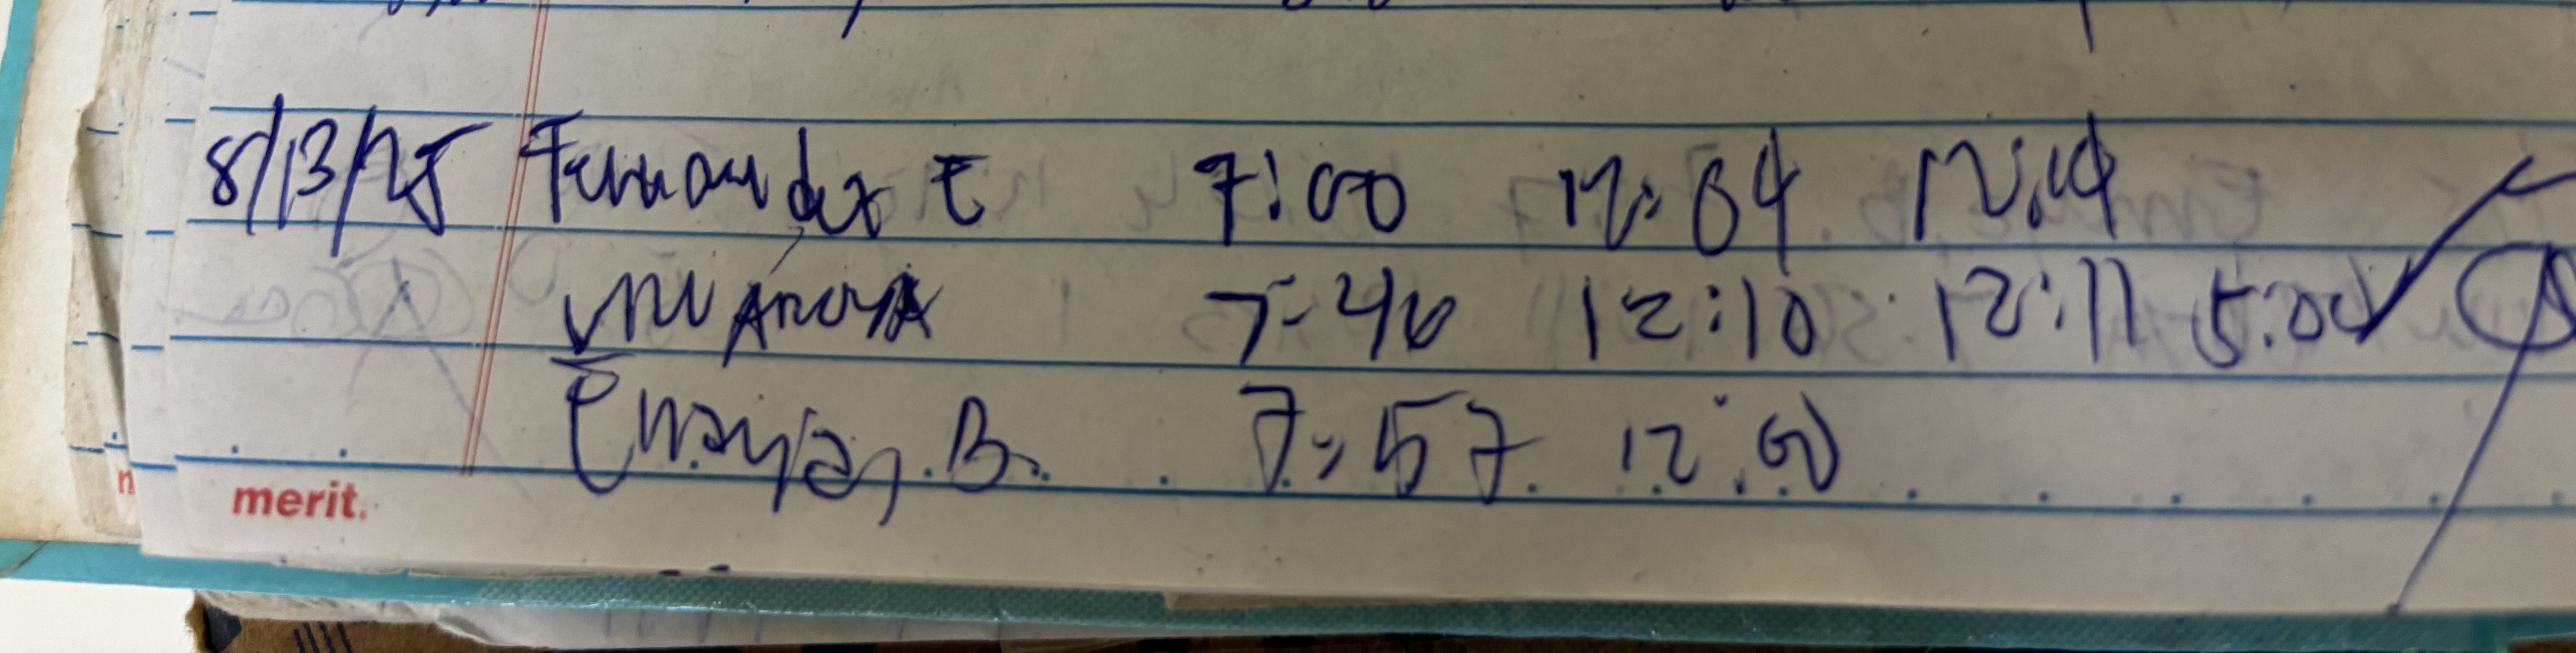 8/13/25 Fernandez E 7:00 12:04 12:14
7:40 12:10 12:11 5:00
B. 7:57 12:00
merit.